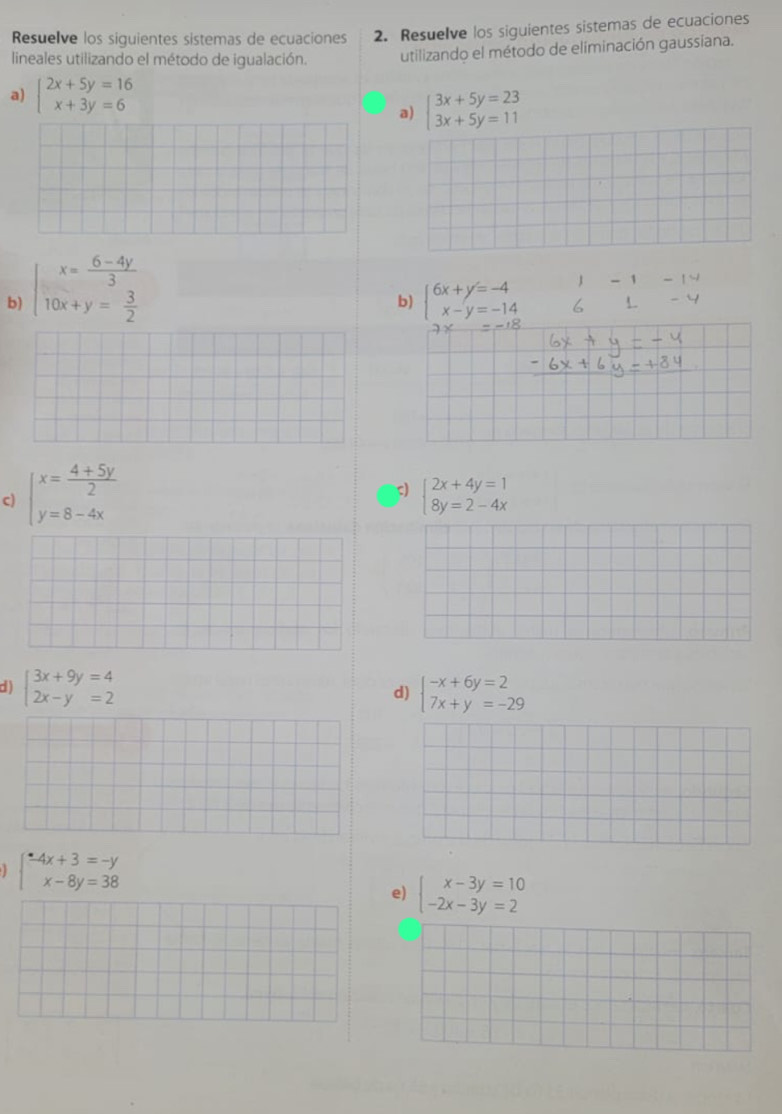 Resuelve los siguientes sistemas de ecuaciones
lineales utilizando el método de igualación.
a) 2x + 5y = 16
x + 3y = 6
b) x = 6 – 4y / 3
10x + y = 3/2
c) x = 4 + 5y / 2
y = 8 – 4x
d) 3x + 9y = 4
2x – y = 2
) -4x + 3 = –y
x – 8y = 38
2. Resuelve los siguientes sistemas de ecuaciones
utilizando el método de eliminación gaussiana.
a) 3x + 5y = 23
3x + 5y = 11
b) 6x + y = –4
x – y = –14
7x = -18
1 -1 -14
6 1 -4
6x + y = -4
- 6x + 6y = +84
c) 2x + 4y = 1
8y = 2 – 4x
d) –x + 6y = 2
7x + y = –29
e) x – 3y = 10
–2x – 3y = 2